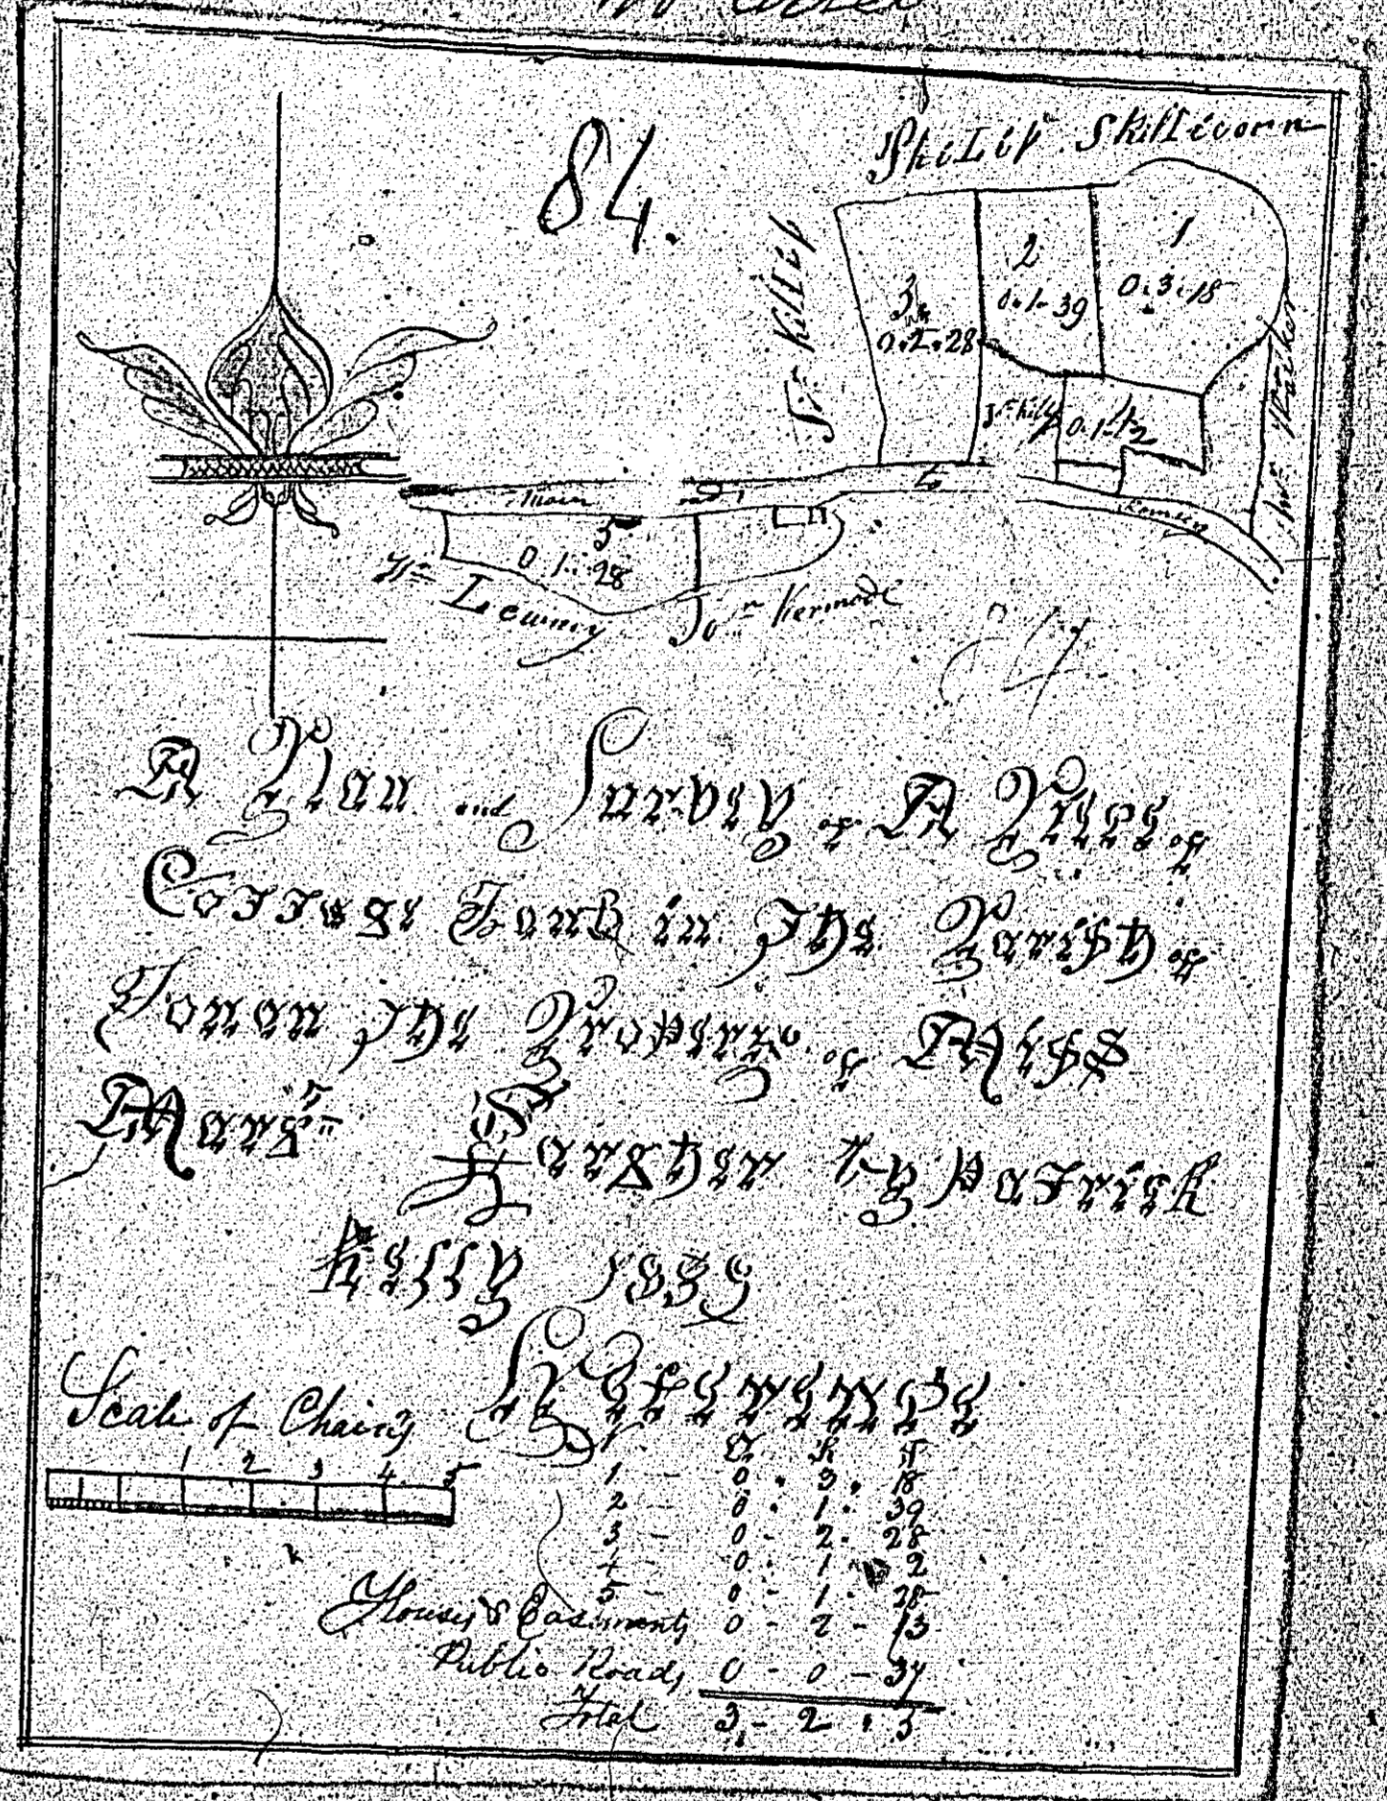 84.
Philip Skillicorn
Jn. Killip
Wm. Walker
1
0.3.18
2
0.1.39
3
0.2.28
Jn. Killip
0.1.2
Main Road to Ramsey
5
0.1.28
Wm. Lewney
Jon. Kermode
A Plan and Survey of A Piece of
Cottage Land in The Parish of
Conan The Property of Miss
Marg.t Faragher by Patrick
Kelly 1839
References
Scale of Chains
1 2 3 4 5
A R P
1 - 0 . 3 . 18
2 - 0 . 1 . 39
3 - 0 - 2 . 28
4 - 0 . 1 . 2
5 - 0 - 1 . 28
Houses & Easments 0 - 2 - 13
Public Roads 0 - 0 - 37
Total 3 - 2 . 5